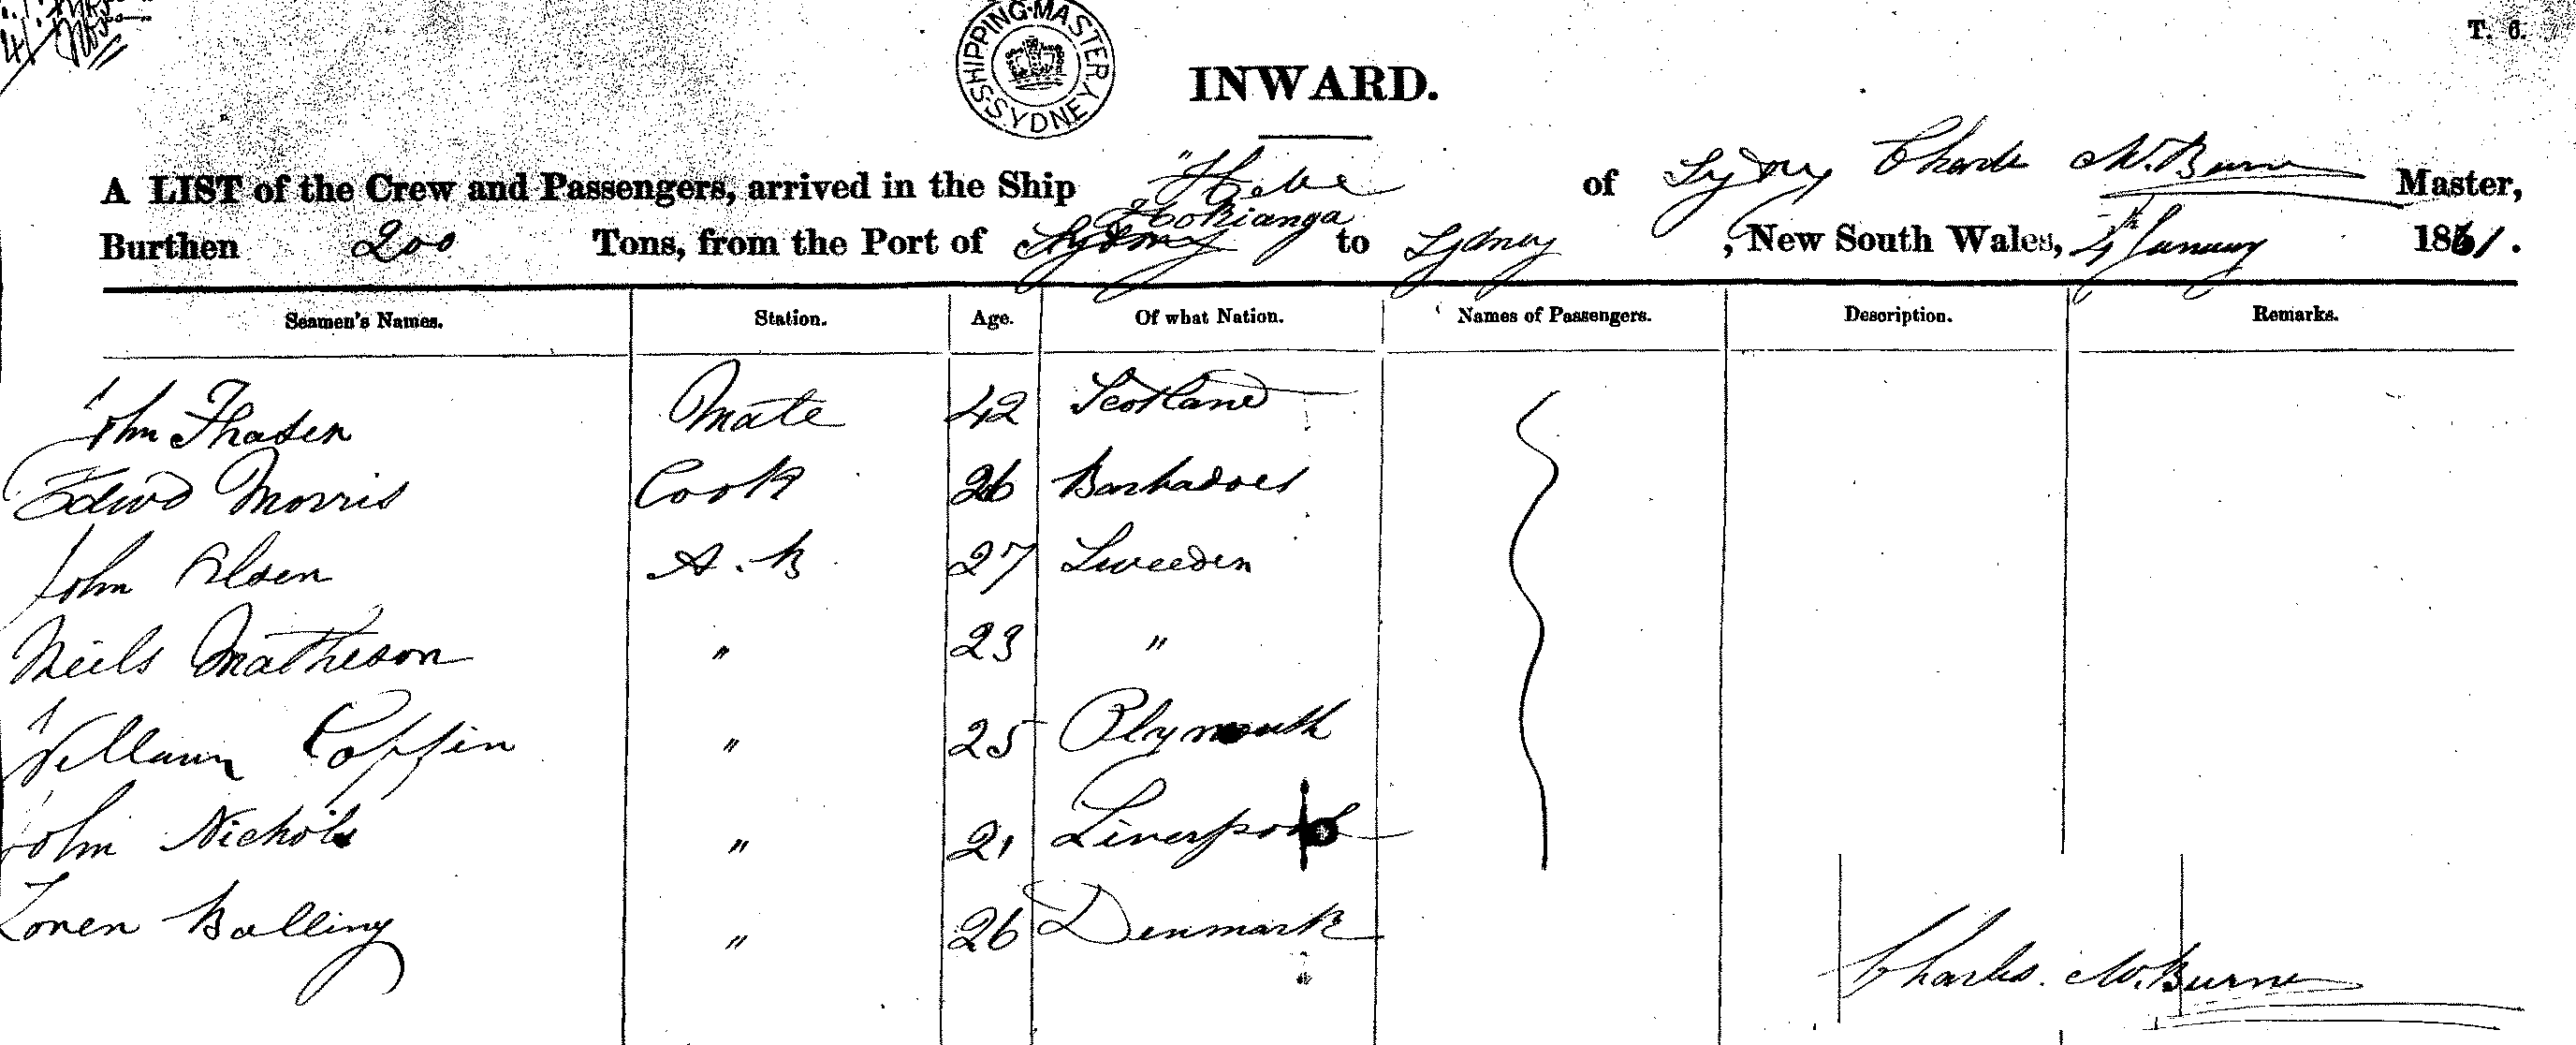 SHIPPING·MASTERS·SYDNEY
T. 6.
INWARD.
A LIST of the Crew and Passengers, arrived in the Ship "Hebe of Sydney Charles W. Burns Master,
Hokianga
Burthen 200 Tons, from the Port of Sydney to Sydney, New South Wales, 4th January 1861.
Seamen's Names. Station. Age. Of what Nation. Names of Passengers. Description. Remarks.
John Mate 42 Scotland
Edwd Morris Cook 26 Barbadoes
John Olsen A.B 27 Sweeden
Neils Matheson " 23 "
William Coffin " 25 Plymouth
John Nichols " 21 Liverpool
Balling " 26 Denmark
Charles W. Burns